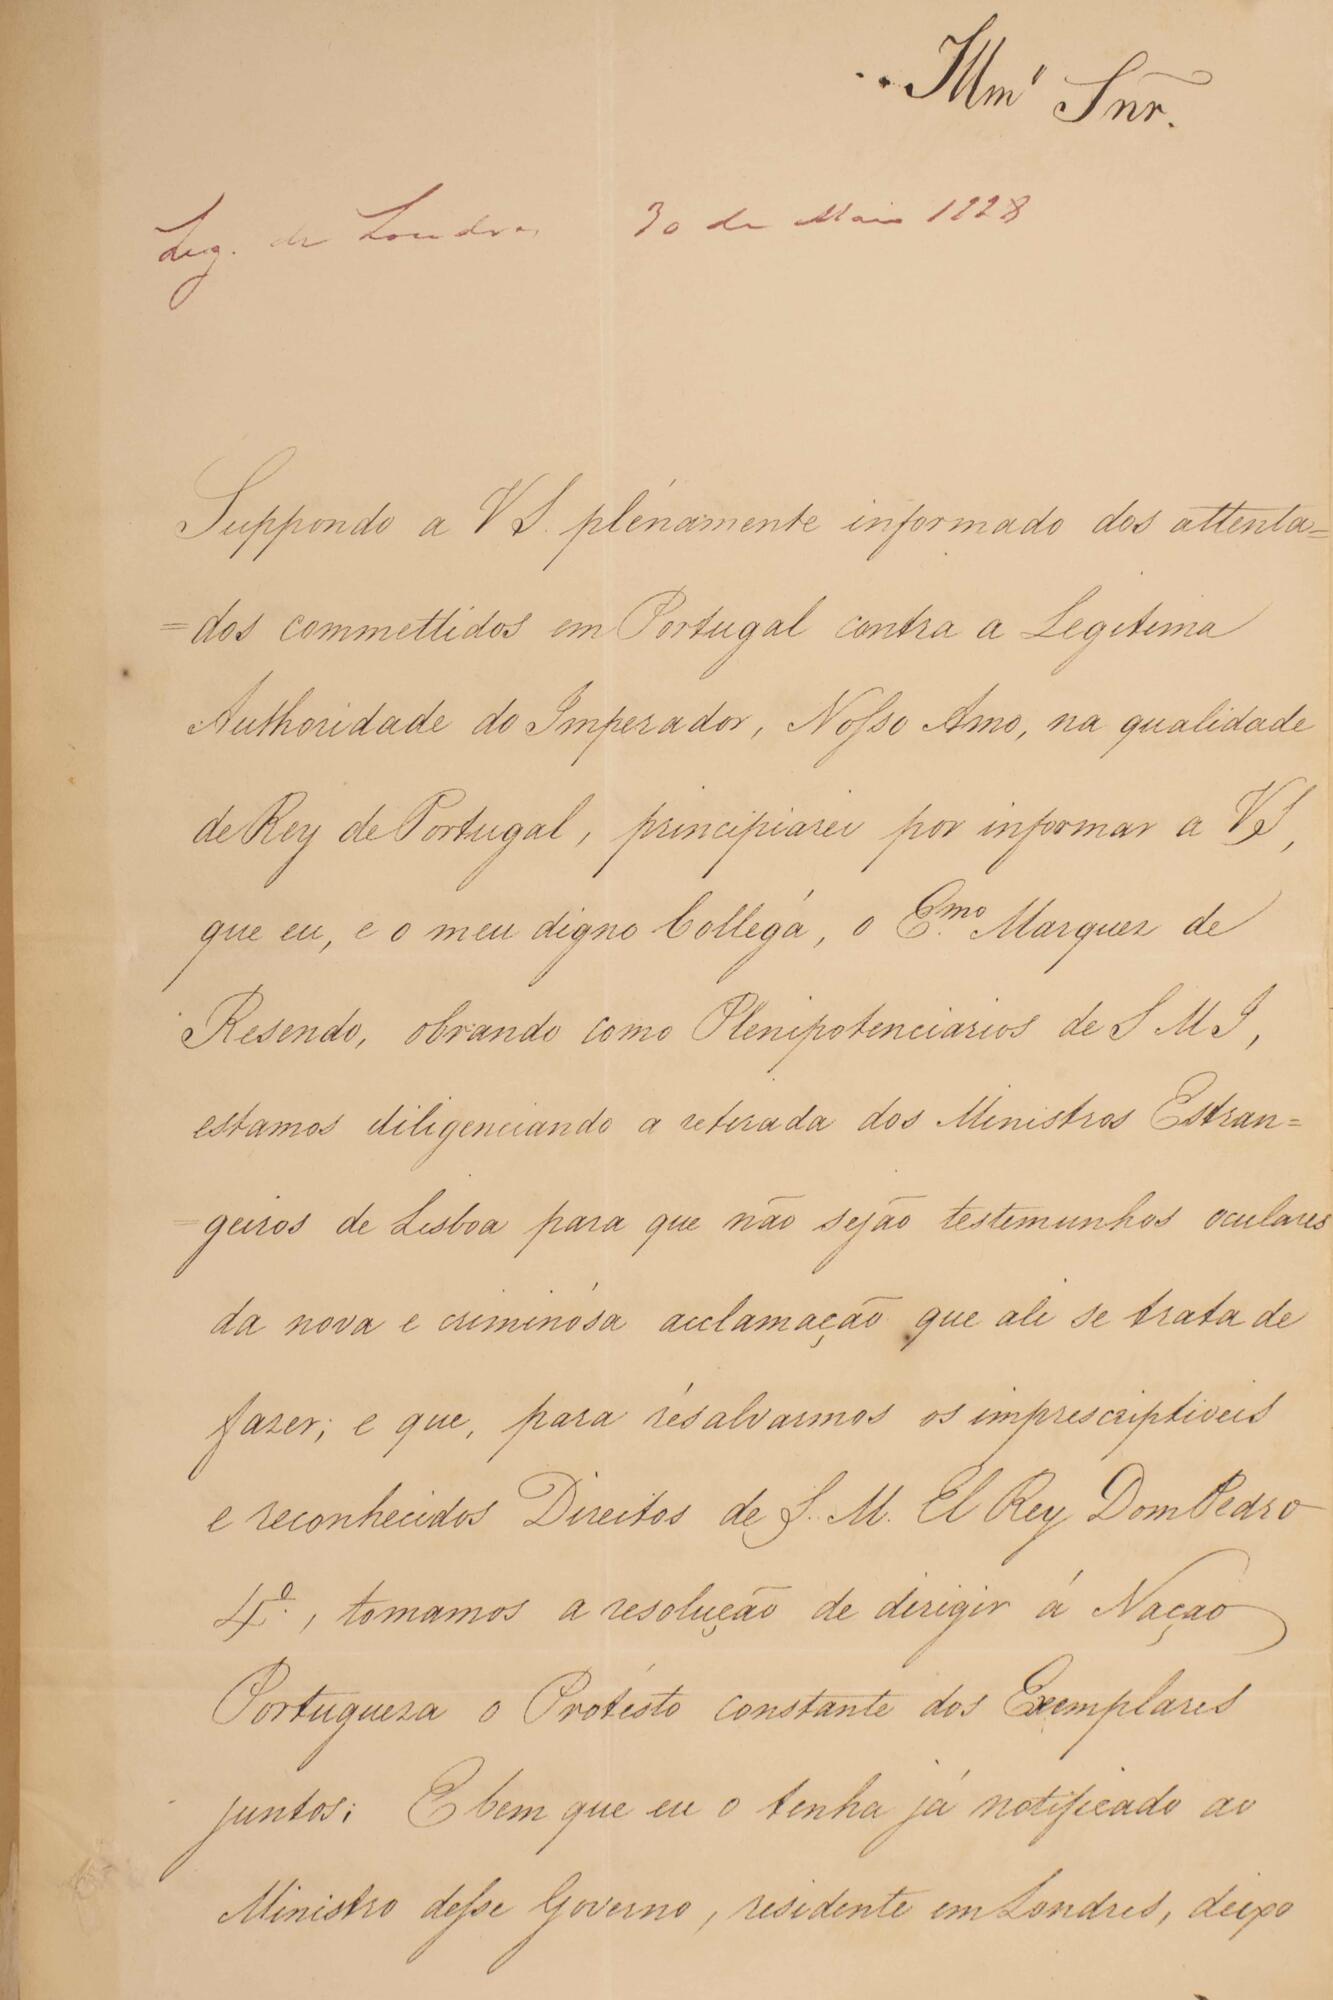 Illmº Snr.
Leg. de Londres 30 de Maio 1828
Suppondo a V S. plénamente informado dos attenta=
=dos commettidos em Portugal contra a Legitima
Authoridade do Imperador, Nosso Amo, na qualidade
de Rey de Portugal, principiarei por informar a V S,
que eu, e o meu digno Collegá, o Emo. Marquez de
Resendo, obrando como Plenipotenciarios de S M I,
estamos diligenciando a retirada dos Ministros Estran=
=geiros de Lisboa para que não sejão testemunhos oculares
da nova e criminósa acclamação que ali se trata de
fazer; e que, para résalvarmos os imprescriptiveis
e reconhecidos Direitos de S. M. El Rey Dom Pedro
4º., tomamos a resolução de dirigir á Naçao
Portugueza o Protésto constante dos Exemplares
juntos; E bem que eu o tenha já notificado ao
Ministro desse Governo, residente em Londres, deixo